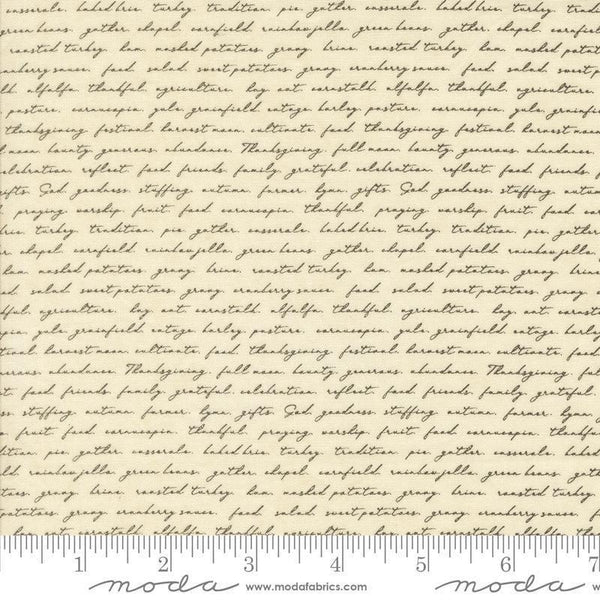 casserole. baked brie. turkey. tradition. pie. gather. casserole. baked brie. turkey. tradi
green beans. gather. chapel. cornfield. rainbow jello. green beans. gather. chapel. cornfiel
roasted turkey. ham. mashed potatoes. gravy. brine. roasted turkey. ham. mashed potat
cranberry sauce. food. salad. sweet potatoes. gravy. cranberry sauce. food. salad. sweet p
lk. alfalfa. thankful. agriculture. hay. oat. cornstalk. alfalfa. thankful. agriculture.
pasture. cornucopia. yule. grainfield. cottage. barley. pasture. cornucopia. yule. grainfi
thanksgiving. festival. harvest moon. cultivate. food. thanksgiving. festival. harvest moon
l moon. bounty. generous. abundance. Thanksgiving. full moon. bounty. generous. abundance.
celebration. reflect. food. friends. family. grateful. celebration. reflect. food. friends. f
gifts. God. goodness. stuffing. autumn. farmer. hymn. gifts. God. goodness. stuffing. autum
l. praying. worship. fruit. food. cornucopia. thankful. praying. worship. fruit. food. cor
brie. turkey. tradition. pie. gather. casserole. baked brie. turkey. tradition. pie. gather
r. chapel. cornfield. rainbow jello. green beans. gather. chapel. cornfield. rainbow jello.
ham. mashed potatoes. gravy. brine. roasted turkey. ham. mashed potatoes. gravy. brine
od. salad. sweet potatoes. gravy. cranberry sauce. food. salad. sweet potatoes. gravy.
kful. agriculture. hay. oat. cornstalk. alfalfa. thankful. agriculture. hay. oat. cornsta
opia. yule. grainfield. cottage. barley. pasture. cornucopia. yule. grainfield. cottage. barley
tival. harvest moon. cultivate. food. thanksgiving. festival. harvest moon. cultivate. food
nerous. abundance. Thanksgiving. full moon. bounty. generous. abundance. Thanksgiving. ful
t. food. friends. family. grateful. celebration. reflect. food. friends. family. grateful.
ss. stuffing. autumn. farmer. hymn. gifts. God. goodness. stuffing. autumn. farmer. hymn
p. fruit. food. cornucopia. thankful. praying. worship. fruit. food. cornucopia. thankfu
tradition. pie. gather. casserole. baked brie. turkey. tradition. pie. gather. casserole. baked
ld. rainbow jello. green beans. gather. chapel. cornfield. rainbow jello. green beans. gath
toes. gravy. brine. roasted turkey. ham. mashed potatoes. gravy. brine. roasted turkey.
potatoes. gravy. cranberry sauce. food. salad. sweet potatoes. gravy. cranberry sauce. f
hay. oat. cornstalk. alfalfa. thankful. agriculture. hay. oat. cornstalk. alfalfa. tha
1 2 3 4 5 6 7
moda www.modafabrics.com moda www.modafabrics.com